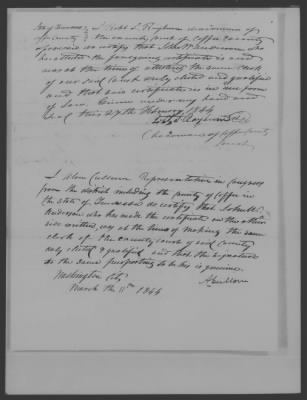 I Robt S. Rayburn chairman of
the county court of Coffee County
do certify that John W. Anderson who
the foregoing certificate is and
was at the time of the same Clerk
of our said Court duly elected and qualified
and that his certificate is in due form
of Law. Given under my hand and
Seal this 27th February 1844
Rayburn
Chairman of Coffee County
Court
I Alvan Cullom Representative in Congress
from the district including the county of Coffee in
the State of Tennessee do certify that John W.
Anderson who made the certificate on the other
side written, was at the time of making the same
clerk of the county court of said county
duly elected & qualified and that the signature
to the same purporting to be his is genuine.
Washington City
A Cullom
March the 11th 1844